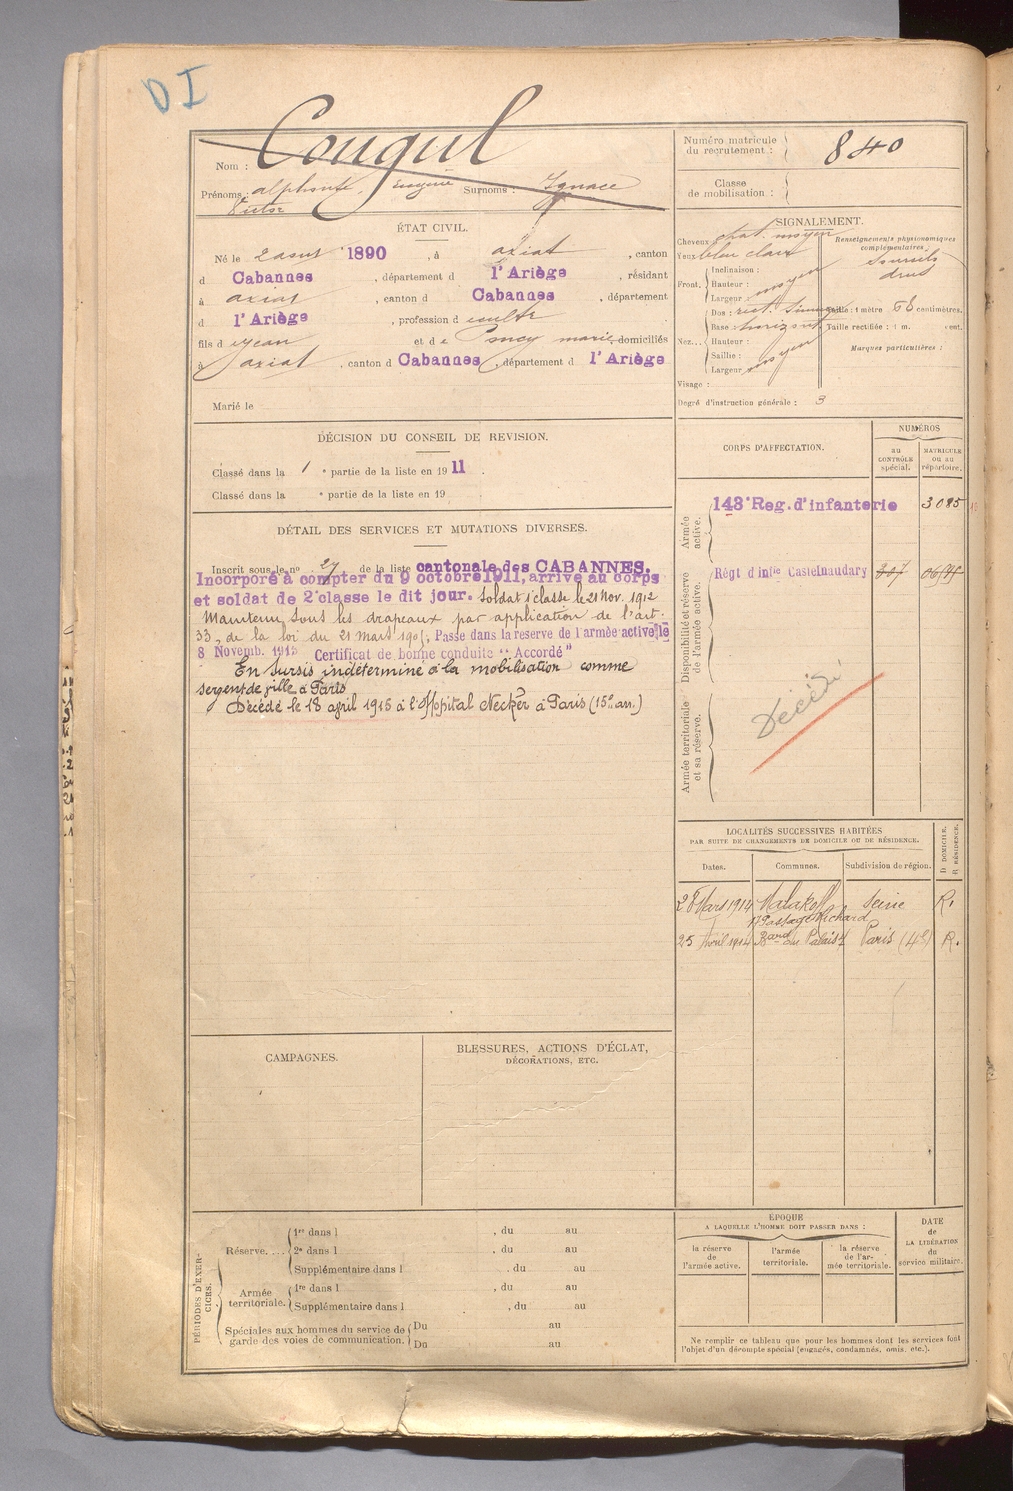 DI
Nom : Cougul
Numéro matricule du recrutement : 840
Prénoms : alphonse, Eugène Surnoms : Ignace
Victor
Classe de mobilisation :
ÉTAT CIVIL.
Né le 2 aout 1890, à axiat, canton
d Cabannes, département d l'Ariège, résidant
à axiat, canton d Cabannes, département
d l'Ariège, profession d cultr
fils d jean et de Poncy marie, domiciliés
à axiat, canton d Cabannes, département d l'Ariège
Marié le
SIGNALEMENT.
Cheveux chat. moyen
Yeux bleu clair
Front. Inclinaison :
Hauteur : moyen
Largeur :
Nez... Dos : rect. sinueux
Base : horizont
Hauteur :
Saillie : moyen
Largeur :
Visage :
Renseignements physionomiques complémentaires :
sourcils
drus
Taille : 1 mètre 68 centimètres.
Taille rectifiée : 1 m. cent.
Marques particulières :
Degré d'instruction générale : 3
DÉCISION DU CONSEIL DE REVISION.
Classé dans la 1e partie de la liste en 1911.
Classé dans la e partie de la liste en 19
DÉTAIL DES SERVICES ET MUTATIONS DIVERSES.
Inscrit sous le no 27 de la liste cantonale des CABANNES.
Incorporé à compter du 9 octobre 1911, arrivé au corps
et soldat de 2e classe le dit jour. Soldat 1e classe le 21 nov. 1912
Maintenu sous les drapeaux par application de l'art.
33, de la loi du 21 Mars 1905, Passé dans la réserve de l'armée active, le
8 Novemb. 1913 Certificat de bonne conduite "Accordé"
En sursis indéterminé à la mobilisation comme
sergent de ville à Paris
Décédé le 18 april 1915 à l'Hopital Necker à Paris (15e arr.)
CORPS D'AFFECTATION.
NUMÉROS
AU CONTRÔLE spécial.
MATRICULE OU AU répertoire.
Armée active.
143e Reg. d'infanterie 3085
Disponibilité et réserve de l'armée active.
Régt d'infie Castelnaudary 807
Armée territoriale et sa réserve.
Décédé
LOCALITÉS SUCCESSIVES HABITÉES
PAR SUITE DE CHANGEMENTS DE DOMICILE OU DE RÉSIDENCE.
Dates. Communes. Subdivision de région. D DOMICILE. R RÉSIDENCE.
28 Mars 1914 Malakoff Seine R.
17 Passage Richard
25 Avril 1914 Band du Palais 1 Paris (4e) R.
CAMPAGNES.
BLESSURES, ACTIONS D'ÉCLAT,
DÉCORATIONS, ETC.
PÉRIODES D'EXERCICES.
Réserve.... 1re dans l , du au
2e dans l , du au
Supplémentaire dans l , du au
Armée territoriale. 1re dans l , du au
Supplémentaire dans l , du au
Spéciales aux hommes du service de garde des voies de communication. Du au
Du au
ÉPOQUE
A LAQUELLE L'HOMME DOIT PASSER DANS :
la réserve de l'armée active.
l'armée territoriale.
la réserve de l'armée territoriale.
DATE DE LA LIBÉRATION du service militaire.
Ne remplir ce tableau que pour les hommes dont les services font
l'objet d'un décompte spécial (engagés, condamnés, omis, etc.).